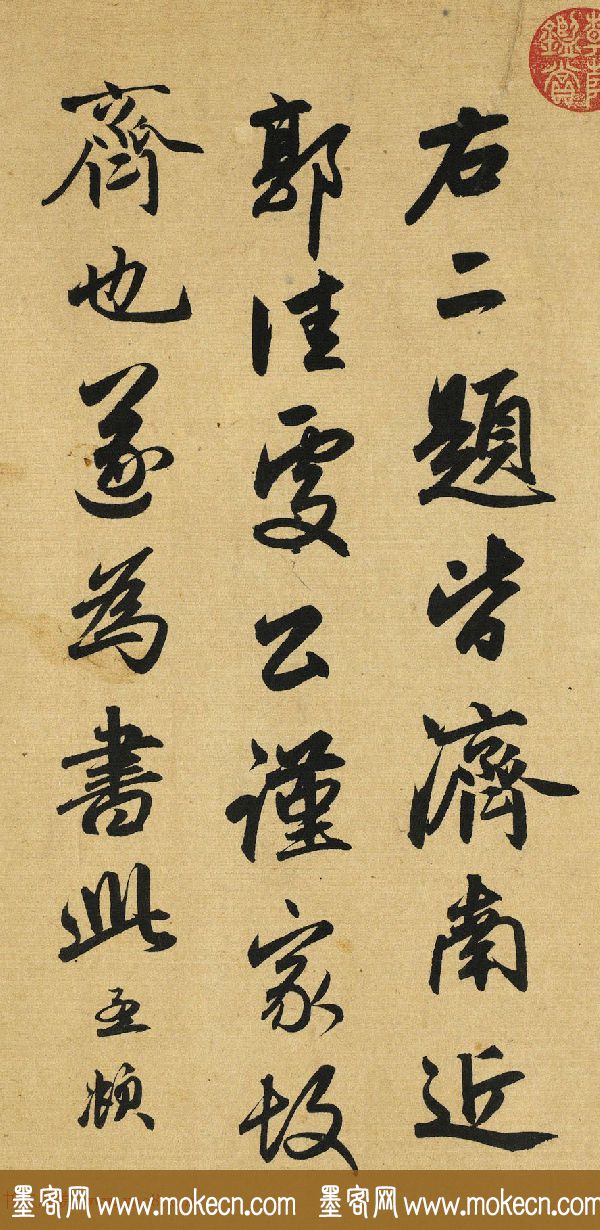 右二題皆濟南近
郭佳處公謹家故
齊也遂為書此孟頫
墨客网 www.mokecn.com 墨客网 www.mokecn.com